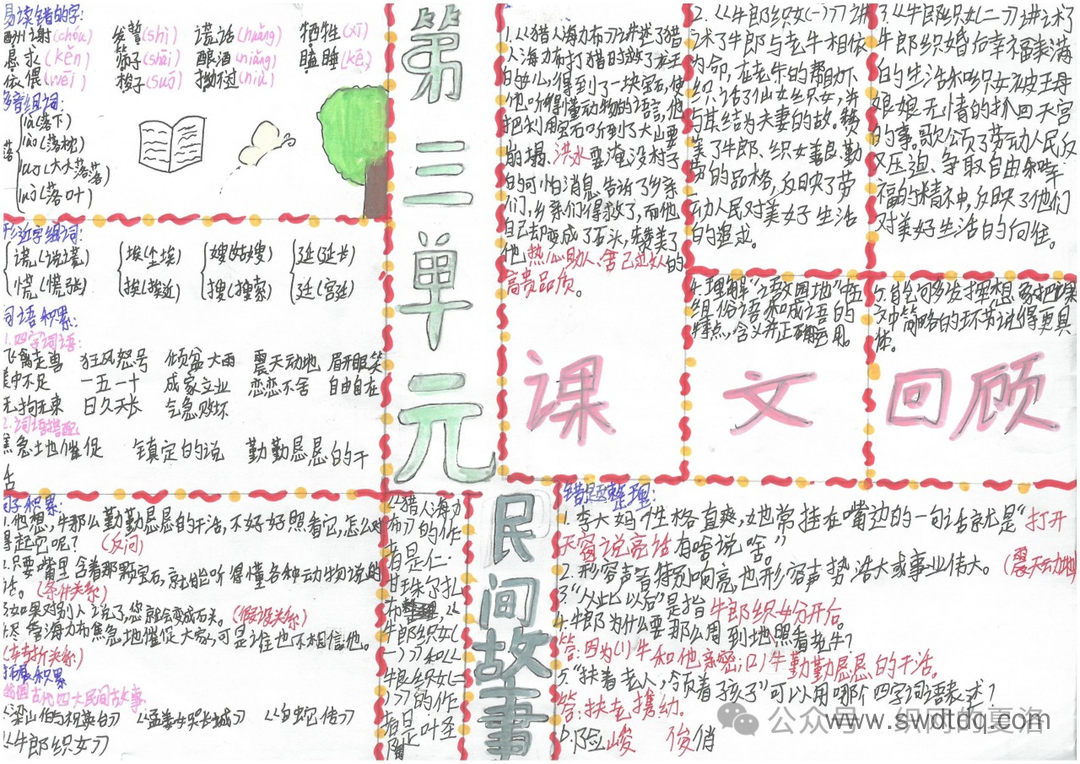 易读错的字:
酬谢(chóu) 发誓(shì) 谎话(huǎng) 牺牲(xī)
恳求(kěn) 筛子(shāi) 酿酒(niàng) 瞌睡(kē)
依偎(wēi) 梭子(suō) 拗不过(niù)
多音组词:
落
là(落下)
lào(落枕)
luō(大大落落)
luò(落叶)
形近字组词:
谎(说谎) 埃(尘埃) 嫂(姑嫂) 延(延长)
慌(慌张) 挨(挨近) 搜(搜索) 廷(宫廷)
词语积累:
1.四字词语:
飞禽走兽 狂风怒号 倾盆大雨 震天动地 眉开眼笑
美中不足 一五一十 成家立业 恋恋不舍 自由自在
无拘无束 日久天长 气急败坏
2.词语搭配
焦急地催促 镇定的说 勤勤恳恳的干
活
句子积累:
1.他想,牛那么勤勤恳恳的干活,不好好照看它,怎么对
得起它呢?(反问)
只要嘴里含着那颗宝石,就能听得懂各种动物说的
话。(条件关系)
3.如果对别人说了,您就会变成石头。(假设关系)
尽管海力布焦急地催促大家,可是谁也不相信他。
(转折关系)
拓展积累
我国古代四大民间故事
《梁山伯与祝英台》 《孟姜女哭长城》 《白蛇传》
《牛郎织女》
第三单元
民间故事
《猎人海力
布》的作
者是仁·
甘珠尔扎
布整理,《
牛郎织女(
一)》和《
牛郎织女(二
)》的作
者是叶圣
陶
1.《猎人海力布》讲述了猎
人海力布打猎时救了龙王
的女儿,得到了一块宝石,使
他听得懂动物的语言,他
把利用宝石听到了大山要
崩塌,洪水要淹没村子
的可怕消息告诉了乡亲
们,乡亲们得救了,而他
自己却变成了石头,赞美了
他热心助人、舍己为人的
高贵品质。
2.《牛郎织女(一)》讲
述了牛郎与老牛相依
为命,在老牛的帮助下,
认识了仙女织女,并
与其结为夫妻的故。赞
美了牛郎、织女善良、勤
劳的品格,反映了劳
动人民对美好生活
的追求。
3.《牛郎织女(二)》讲述了
牛郎织婚后幸福美满
的生活和织女被王母
娘娘无情的抓回天宫
的事。歌颂了劳动人民反
反压迫、争取自由和幸
福的精神,反映了他们
对美好生活的向往。
4.理解“语文园地”中
组俗语和成语的
特点,含义并正确运用。
5.能够发挥想象把课
文中简略的环节说得更具
体。
课文回顾
错题整理:
1.李大妈性格直爽,她常挂在嘴边的一句话就是“打开
天窗说亮话有啥说啥”
2.形容声音特别响亮,也形容声势浩大或事业伟大。(震天动地)
3.“从此以后”是指牛郎织女分开后。
4.牛郎为什么要那么周到地照看老牛?
答:因为(1)牛和他亲密;(2)牛勤勤恳恳的干活。
5.“扶着老人,领着孩子”可以用哪个四字词语表述?
答:扶老携幼。
6.险峻 俊俏
公众号
www.swdtdq.com
夏洛